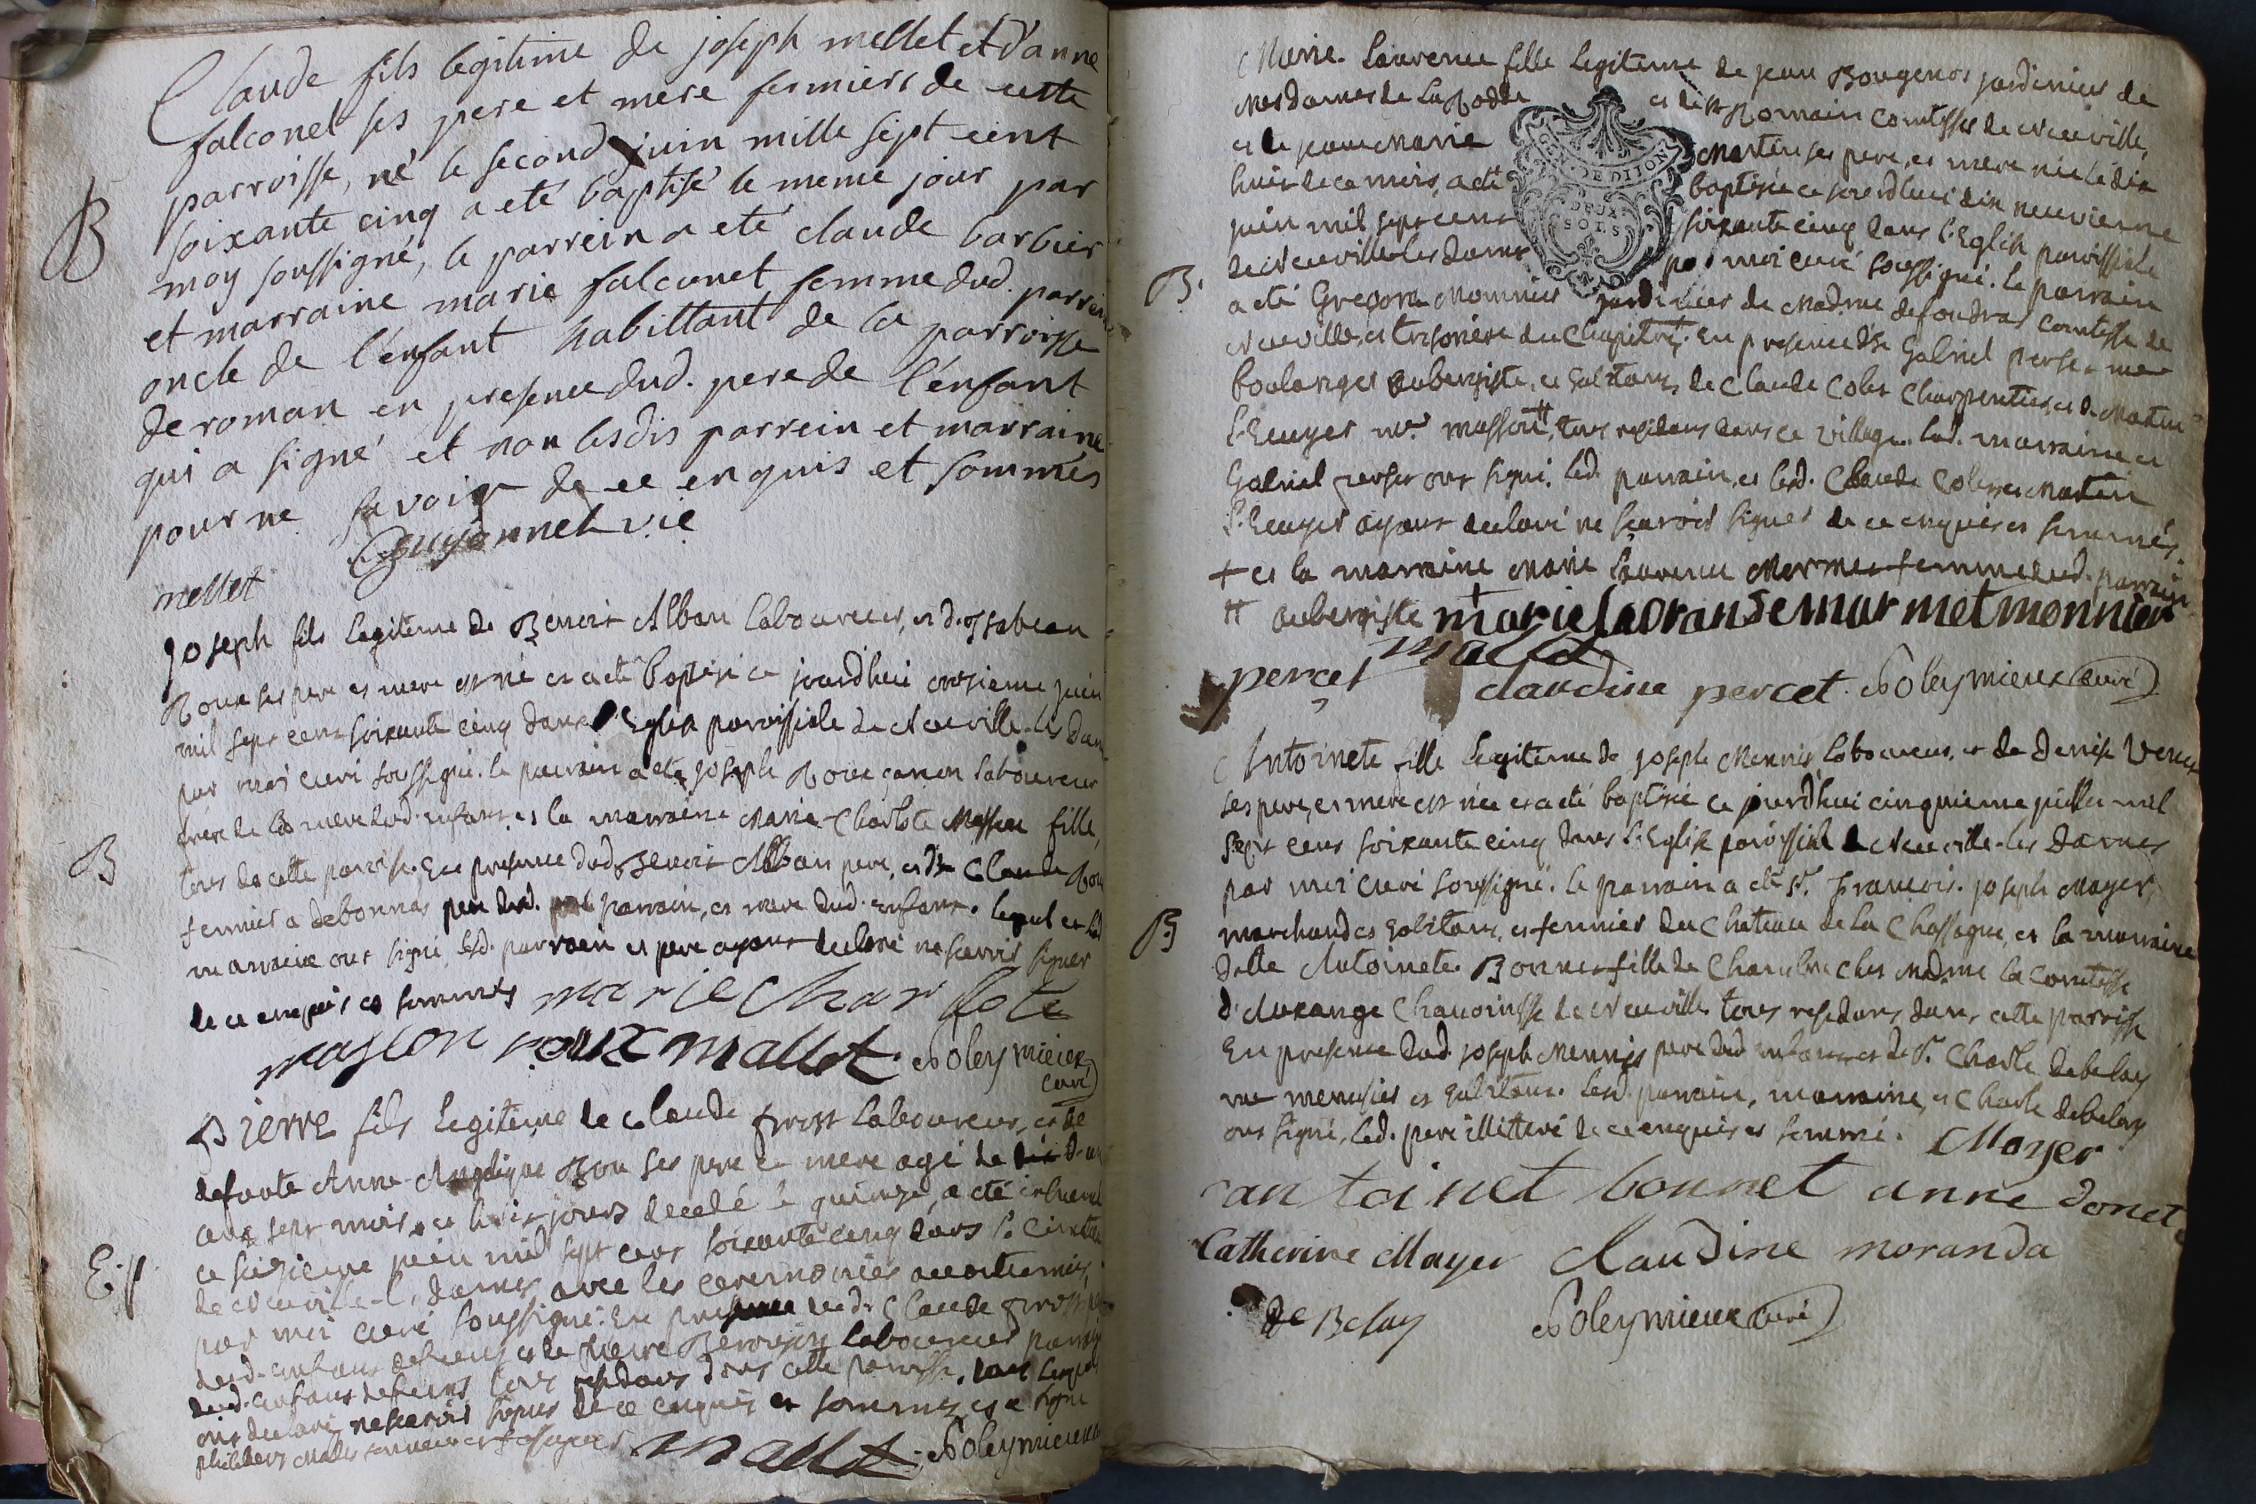 Claude fils legitime de joseph mellet et d'anne
falconet ses pere et mere fermiers de cette
parroisse, né le second juin mille sept cent
soixante cinq a eté baptisé le meme jour par
moy soussigné, le parrein a eté claude barbier
et marraine marie falconet femme dud. parrein
oncle de l'enfant habittant de la parroisse
de roman en presence dud. pere de l'enfant
qui a signé et non lesdis parrein et marraine
pour ne savoir de ce enquis et sommés
B
mellet Guyonnet vic
joseph fils legitime de Benoit Alban laboureur, et d'
Roux ses pere et mere est né et a eté baptisé ce jourd'hui onzieme juin
mil sept cent soixante cinq dans l'Eglise paroissiale de Neuville-les Dam
par moi curé soussigné. le parrain a eté joseph Roux laboureur
frere de la mere dud. enfant et la marraine Marie-Charlote Masson fille,
tous de cette paroisse. En presence dud. Benoit Alban pere, et de Claude Rou
fermier a debonnas pere dud. parrain, et mere dud. enfant. lequel et lad
marraine ont signé, led. parrain et pere ayant declaré ne scavoir signer
de ce enquis et sommés marie Charlote
B
masson roux mallet. Soleymieux
curé
Pierre fils legitime de Claude Prost laboureur, et de
defunte Anne-Angelique Rou ses pere et mere agé de d'un
ans sept mois et huit jours decedé le quinze, a eté inhumé
ce seizieme juin mil sept cent soixante cinq dans le Cimetiere
de Neuville-l. dames avec les ceremonies accoutumées,
par moi curé soussigné. En presence dud. Claude Prost pere
dud. enfant defunt et de Pierre laboureur parrain
dud. enfant defunt tous residans dans cette paroisse. lesquels
ont declaré ne scavoir signer de ce enquis et sommés, et a signé
Mallet
E.p.
mallet. Soleymieux
Marie-Laurence fille legitime de jean Bougenot jardinier de
Mesdames de La Rodde et de St Romain Comtesses de Neuville,
et de jeanne Marie Martin ses pere, et mere née le dix
huit de ce mois, a eté baptisée ce jourd'hui dix neuvieme
juin mil sept cent soixante cinq dans l'Eglise paroissiale
de Neuville-les Dames par moi curé soussigné. le parrain
GEN. DE DIJON
DEUX
SOLS
B.
a eté Monnier jardinier de Madme de foudras Comtesse de
Neuville, et tresoriere du Chapitre. En presence de Gabriel Perset me
boulanger aubergiste, et habitant, de Claude Colet Charpentier, et de Martin
l'Ecuyer me masson #, tous residans dans ce village. lad. marraine et
Gabriel perset ont signé. led. parrain, et led. Claude Colet et Martin
l'Ecuyer ayant declaré ne scavoir signer de ce enquis et sommés.
+ et la marraine Marie Laurence Mermet femme dud. parrain
# aubergiste + marie laoranse mar met monnier
perçet mallet
claudine percet. Soleymieux curé
Antoinete fille legitime de joseph Mennis laboureur, et de Denise
ses pere, et mere est née et a eté baptisée ce jourd'hui cinquieme juillet mil
sept cent soixante cinq dans l'Eglise paroissiale de Neuville-les Dames
par moi curé soussigné. le parrain a eté Sr. François-joseph Mayer
marchand et habitant, et fermier du Chateau de la Chassagne, et la marraine
Delle Antoinete Bonnet fille de Chambre ches Madme la Comtesse
d' Chanoinesse de Neuville tous residans dans cette paroisse
En presence dud. joseph Mennis pere dud. enfant et de Sr. Charle debelay
me menusier et habitant. lesd. parrain, marraine, et Charle debelay
ont signé, led. pere illitteré de ce enquis et sommé. Mayer
B
an toi net bonnet anne donet
Catherine Mayer Claudine moranda
de Belay Soleymieux curé